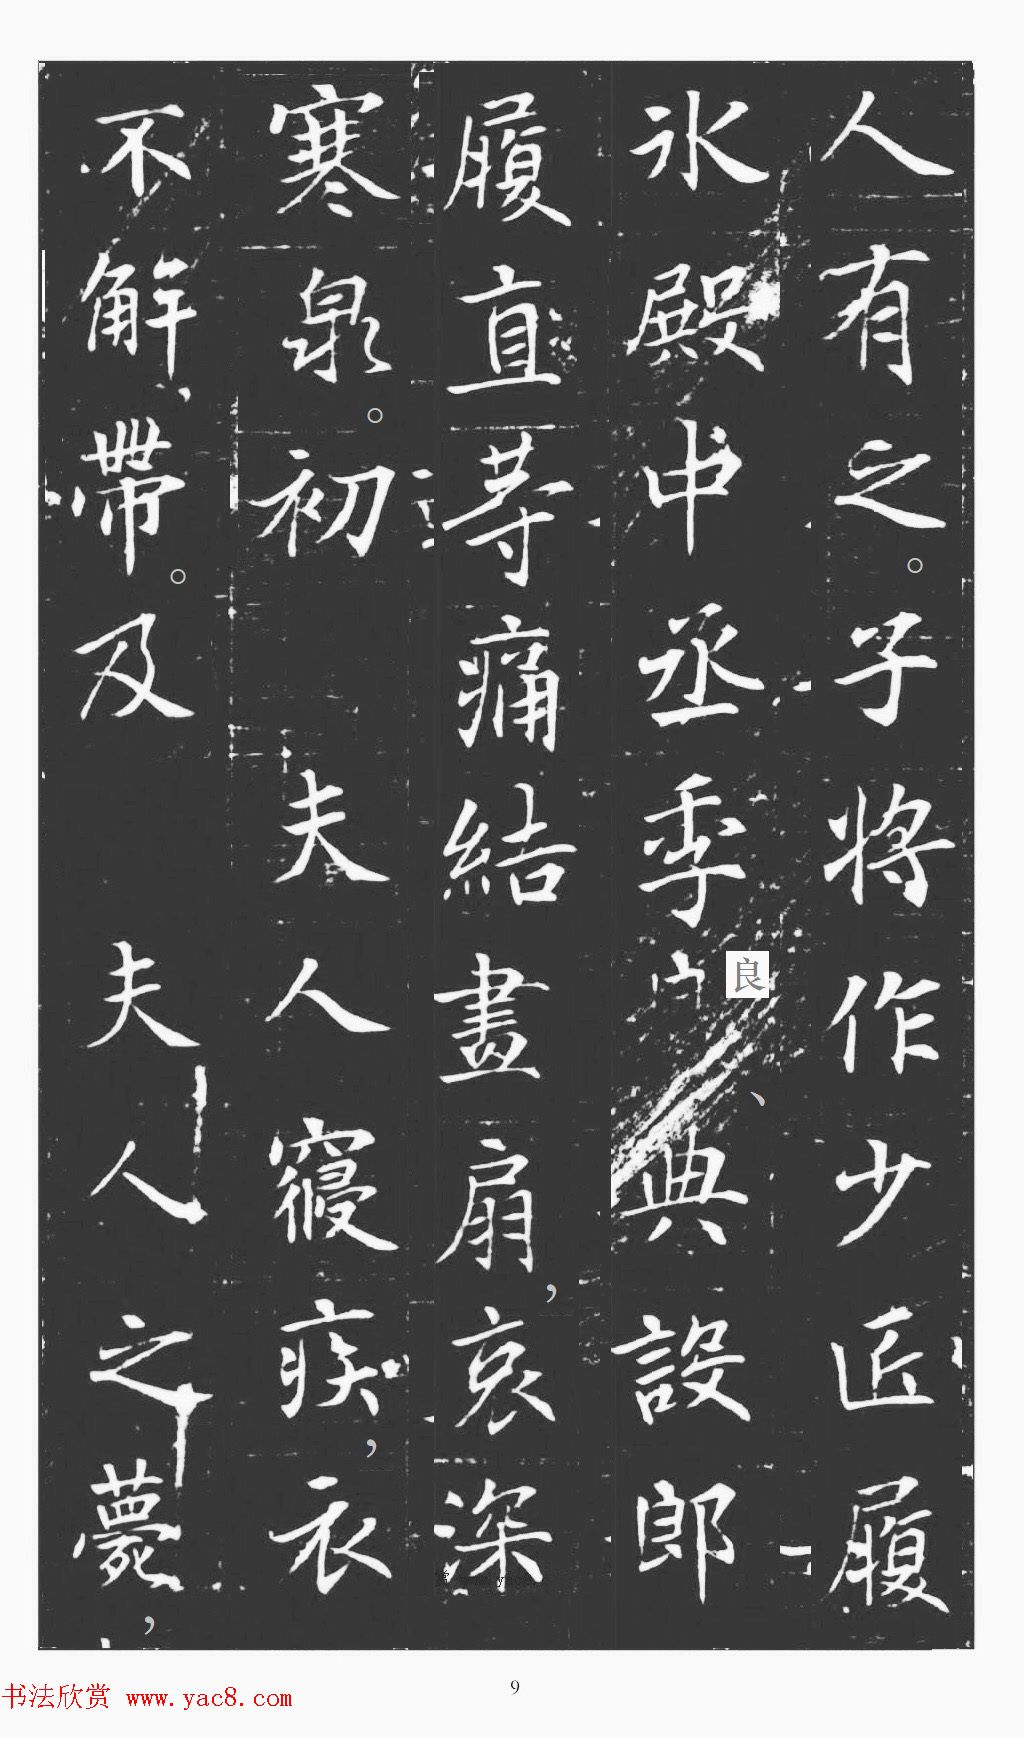 人有之。子將作少匠履
冰殿中丞季良、典設郎
履直等痛結畫扇，哀深
寒泉。初夫人寢疾，衣
不解帶。及夫人之薨，
9
书法欣赏 www.yac8.com